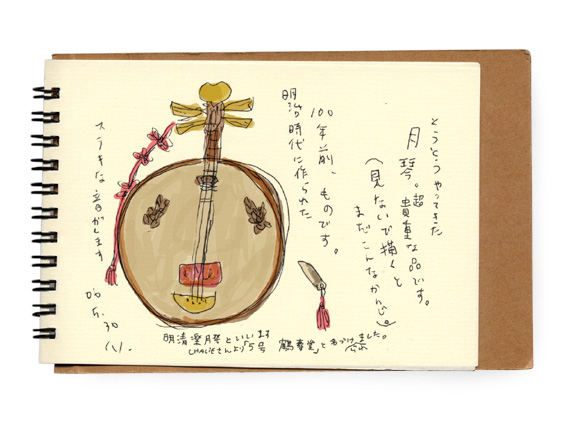 とうとうやってきた
月琴。超貴重な品です。
(見ないで描くと
まだこんなかんじ。)
100年前、ものです。
明治時代に作られた
ステキな音がします
06.5.30
明清楽月琴といいます
鶴寿堂」と名づけ
ました。